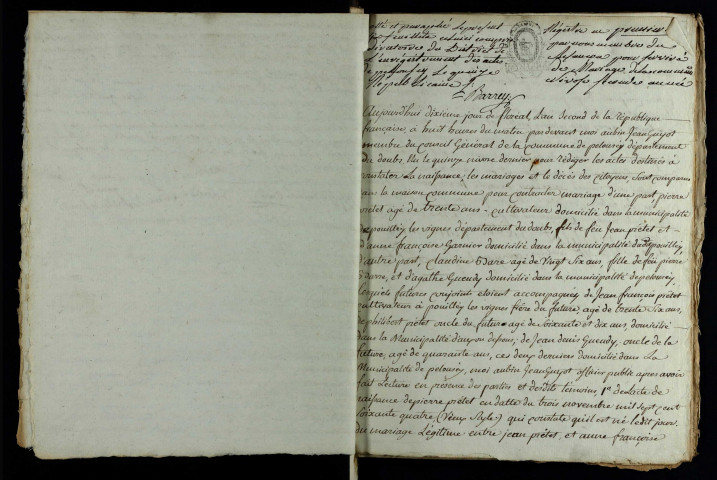 Registre en premier
par nous membres du
Besançon pour servir à
de Mariage de la commune
Barrey
Aujourd'hui dixieme jour de floréal, l'an Second de la république
française, a huit heures du matin par devant moi aubin Jean Guyot
membre du Conseil Général de la commune de pelousey département
du doubs élu le quinze nivose dernier pour rédiger les actes destinés à
constater la naissance, les mariages et le décès des Citoyens, sont comparus
dans la maison commune pour contracter mariage d'une part, pierre
piétet agé de trente ans - cultivateur domicilié dans la municipalité
de pouilley les vignes departement du doubs, fils de feu Jean piétet et
d'anne françoise Garnier domicilié dans la municipalité dudit pouilley,
d'autre part, Claudine agé de Vingt Six ans, fille de feu pierre
et d'agathe Gueudy domicilié dans la municipalité de pelousey,
lesquels futures conjoints etoient accompagnés de Jean françois piétet
cultivateur à pouilley les vignes frère du future, agé de trente Six ans,
de philibert piétet oncle du future agé de Soixante et dix ans, domicilié
dans la Municipalité de Jean denis Gueudy, oncle de la
future, agé de quarante ans, ces deux derniers domicilié dans La
Municipalité de pelousey, moi aubin Jean Guyot officier public apres avoir
fait Lecture en présence des parties et desdits temoins, 1° de L'acte de
naissance de pierre piétet en datte du trois novembre mil sept cent
Soixante quatre (Vieux Style) qui constate qu'il est né ledit jour
du mariage Légitime entre jean piétet, et anne françoise